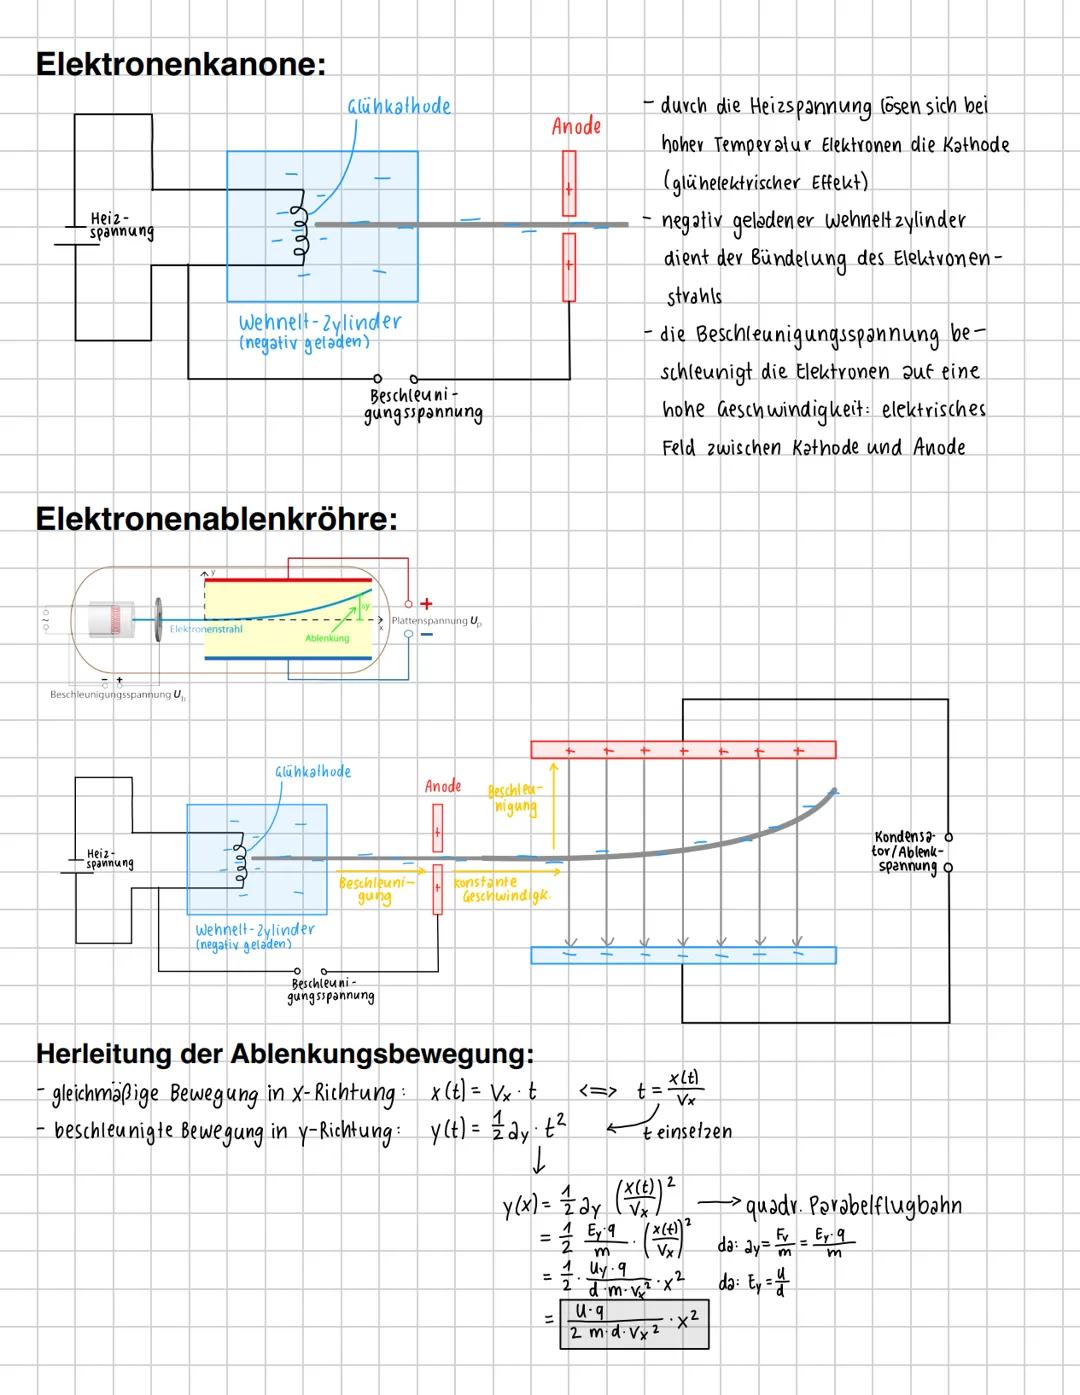 Elektronenkanone:
Glühkathode
Anode
Heiz-
spannung
Wehnelt-Zylinder
(negativ geladen)
Beschleuni-
gungsspannung
- durch die Heizspannung lösen sich bei
hoher Temperatur Elektronen die Kathode
(glühelektrischer Effekt)
- negativ geladener Wehneltzylinder
dient der Bündelung des Elektronen-
strahls
- die Beschleunigungsspannung be-
schleunigt die Elektronen auf eine
hohe Geschwindigkeit: elektrisches
Feld zwischen Kathode und Anode
Elektronenablenkröhre:
y
Elektronenstrahl
Δy
Ablenkung
x
+
Plattenspannung Uₚ
−
− +
Beschleunigungsspannung U_b
Glühkathode
Anode
Heiz-
spannung
Wehnelt-Zylinder
(negativ geladen)
Beschleuni-
gungsspannung
Beschleuni-
gung
konstante
Geschwindigk.
Beschleu-
nigung
Kondensa-
tor/Ablenk-
spannung
Herleitung der Ablenkungsbewegung:
- gleichmäßige Bewegung in x-Richtung: x(t) = Vx · t <=> t = x(t)/Vx
- beschleunigte Bewegung in y-Richtung: y(t) = 1/2 ay · t² ← t einsetzen
↓
y(x) = 1/2 ay (x(t)/Vx)² → quadr. Parabelflugbahn
= 1/2 Ey·q/m · (x(t)/Vx)² da: ay = Fy/m = Ey·q/m
= 1/2 · Uy·q/d·m·Vx² · x² da: Ey = U/d
= U·q/2 m·d·Vx² · x²